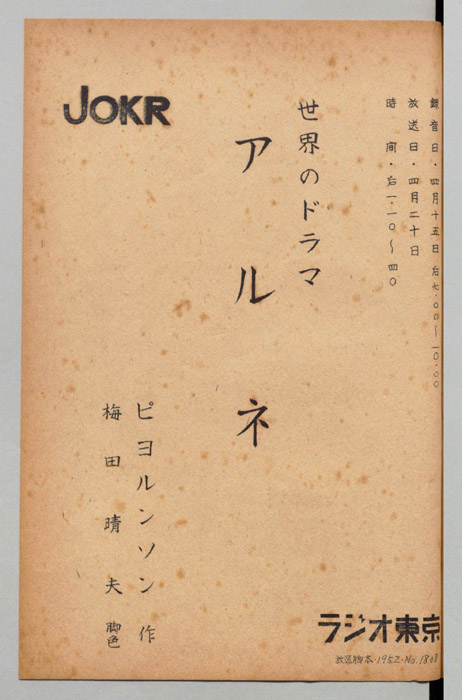 録音日・四月十五日 后七・〇〇〜一〇・〇〇
放送日・四月二十日
時間・后一・一〇〜四〇
世界のドラマ
アルネ
ピヨルンソン 作
梅田晴夫 脚色
JOKR
ラジオ東京
放送脚本・1952・No.180